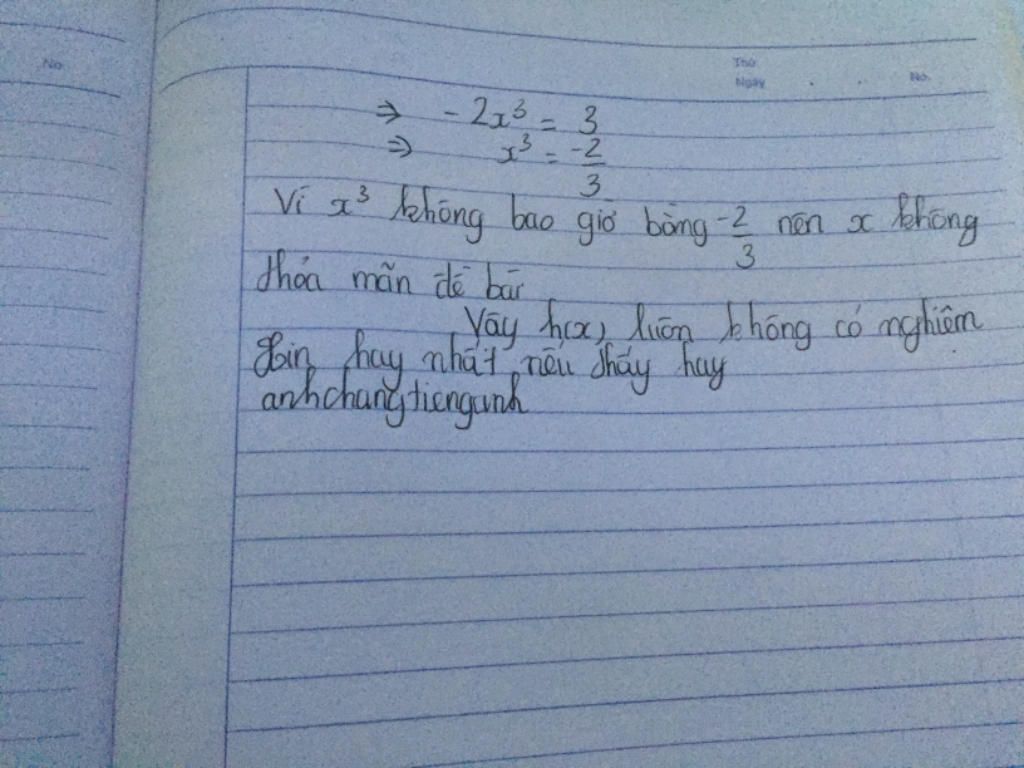 No
Thứ
Ngày . . No.
⇒ -2x³ = 3
⇒ x³ = -2/3
Vì x³ không bao giờ bằng -2/3 nên x không
thỏa mãn đề bài
Vậy h(x) luôn không có nghiệm
Xin hay nhất nếu thấy hay
anhchangtienganh